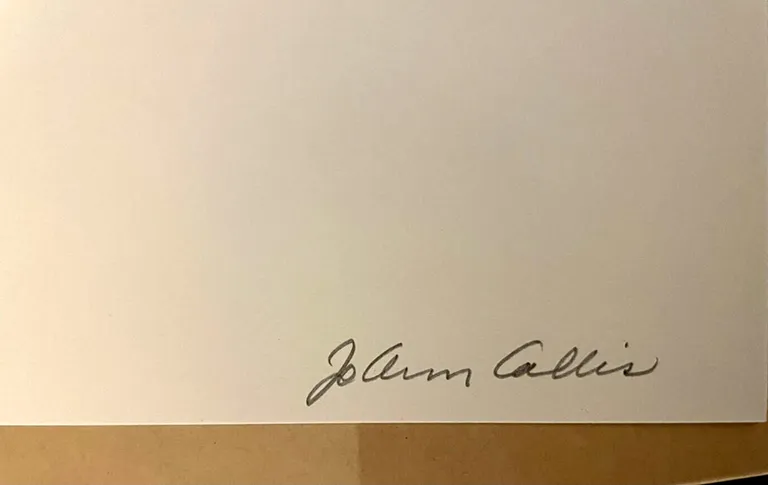 JoAnn Callis